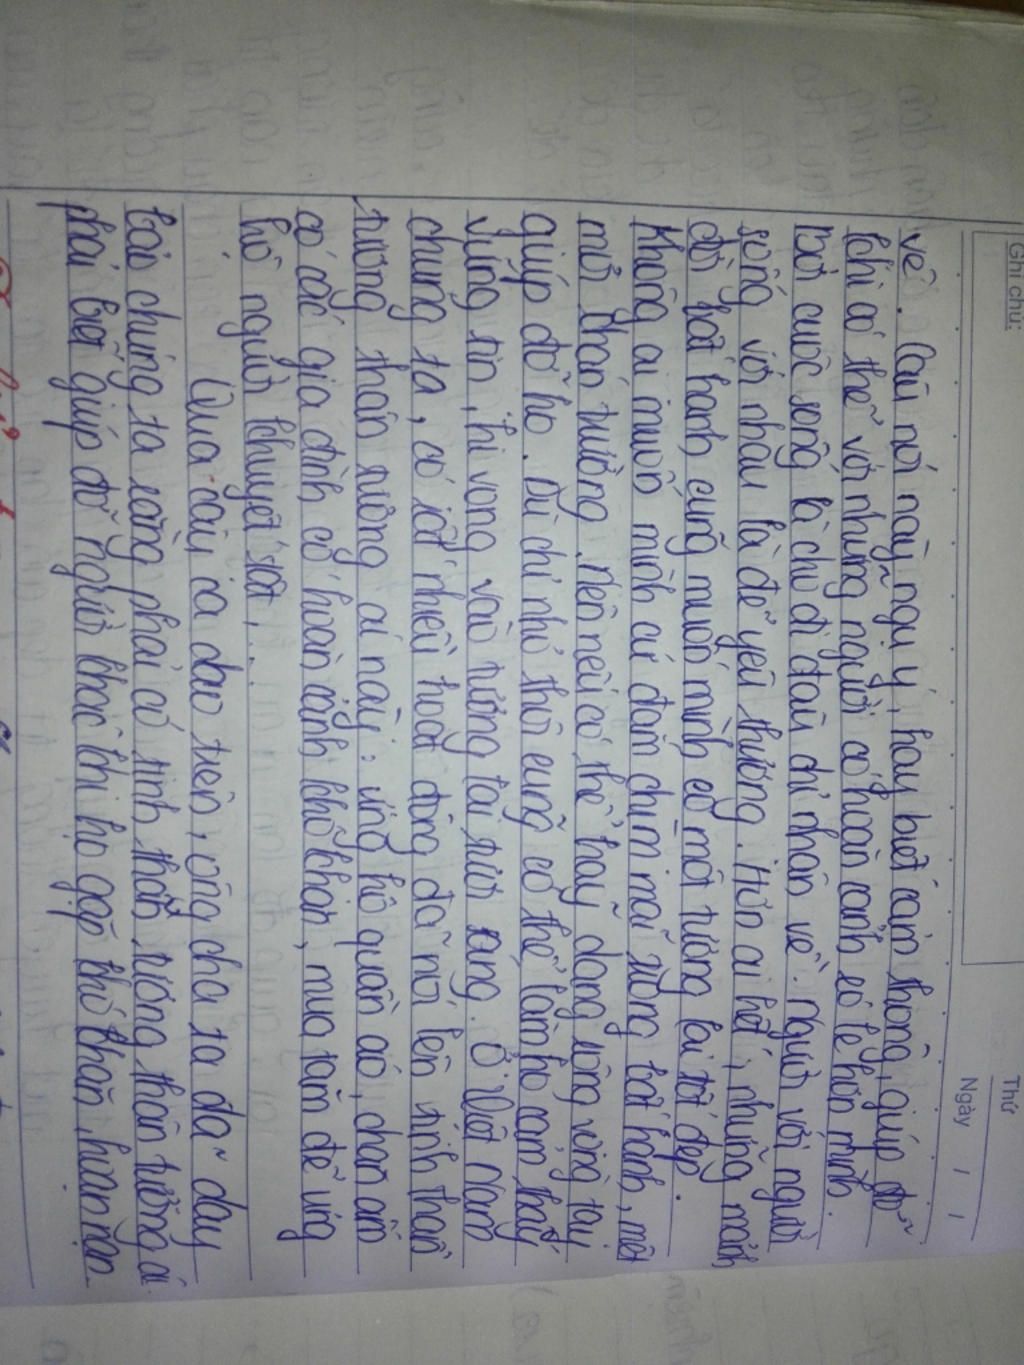 Ghi chú:
Thứ
Ngày / /
về. Câu nói này ngụ ý, hãy biết cảm thông, giúp đỡ
khi có thể với những người có hoàn cảnh éo le hơn mình.
Bởi cuộc sống là cho đi đâu chỉ nhận về. Người với người
sống với nhau là để yêu thương. Hơn ai hết, những mảnh
đời bất hạnh cũng muốn mình có một tương lai tốt đẹp.
Không ai muốn mình cứ đắm chìm mãi trong bất hạnh, một
mớ chán trường. Nên nếu có thể hãy dang rộng vòng tay
giúp đỡ họ. Dù chỉ nhỏ thôi cũng có thể làm họ cảm thấy
vững tin, hi vọng vào tương lai tươi sáng. Ở Việt Nam
chúng ta, có rất nhiều hoạt động đã nói lên tinh thần
tương thân tương ái này: ủng hộ quần áo, chăn ấm
có các gia đình có hoàn cảnh khó khăn, mua tăm để ủng
hộ người khuyết tật,...
Qua câu ca dao trên, ông cha ta đã dạy
bảo chúng ta rằng phải có tinh thần tương thân tương ái
phải biết giúp đỡ người khác khi họ gặp khó khăn, hoạn nạn